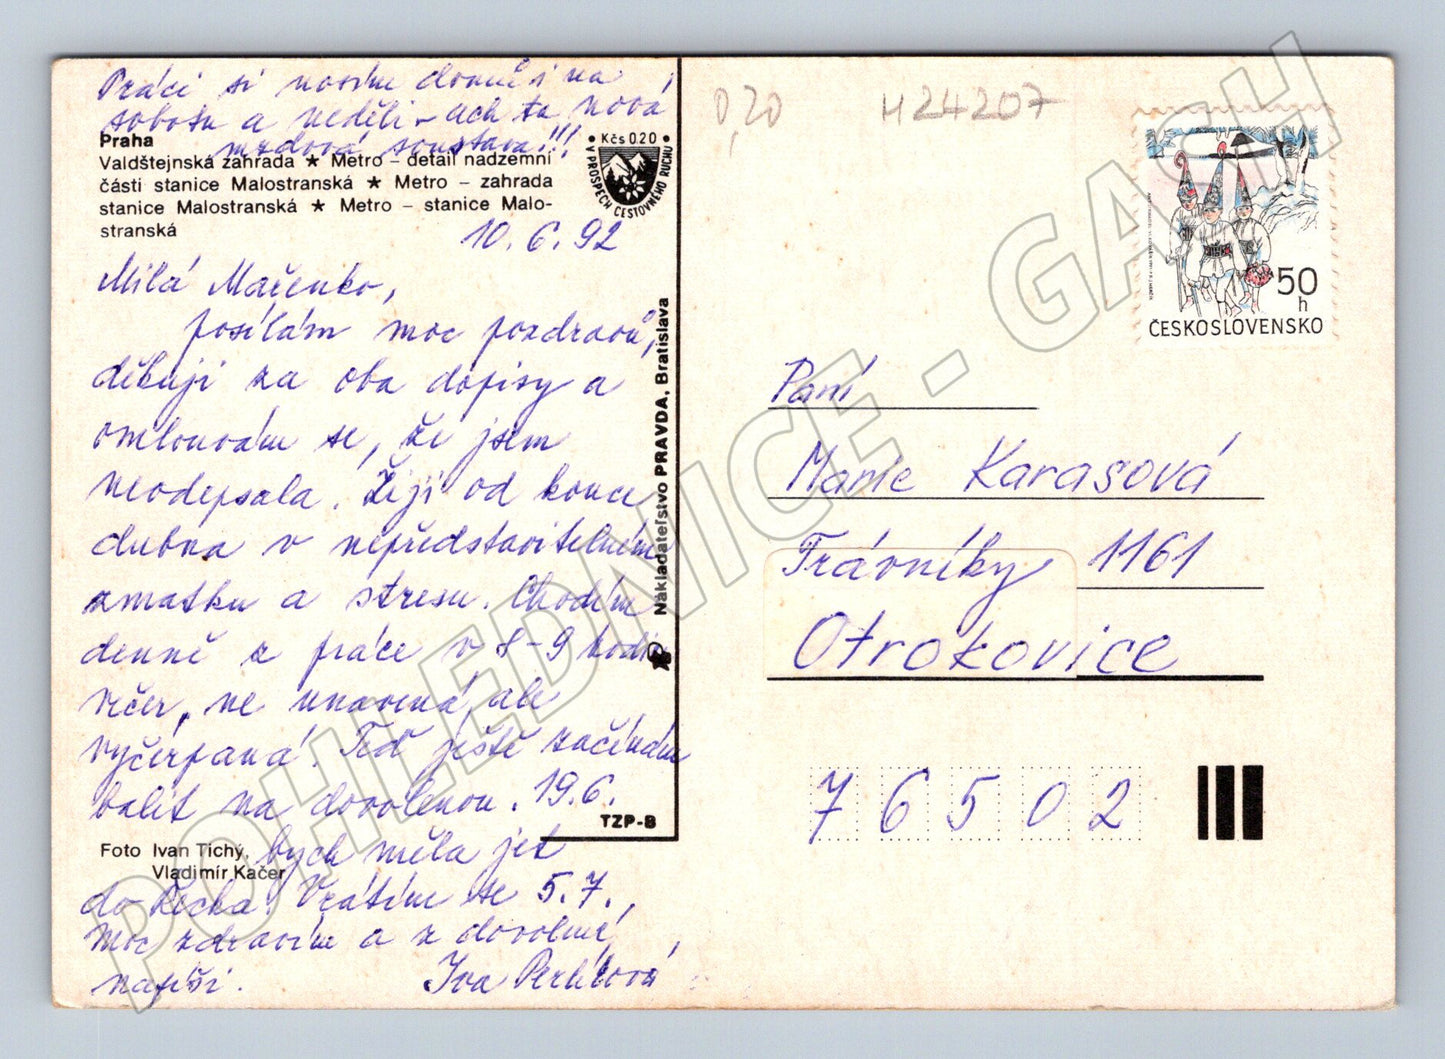 Práci si nosím domů i na
sobotu a neděli – ach ta nová
mzdová soustava!!!
Praha
Valdštejnská zahrada ★ Metro – detail nadzemní
části stanice Malostranská ★ Metro – zahrada
stanice Malostranská ★ Metro – stanice Malo-
stranská
• Kčs 0.20 •
V PROSPECH CESTOVNÉHO RUCHU
10. 6. 92
Milá Mařenko,
posílám moc pozdravů,
děkuji za oba dopisy a
omlouvám se, že jsem
neodepsala. Žiji od konce
dubna v nepředstavitelném
zmatku a stresu. Chodím
denně z práce v 8-9 hodin
večer, ne unavená, ale
vyčerpaná! Teď ještě začínám
balit na dovolenou. 19.6.
bych měla jet
do Řecka. Vrátím se 5.7.,
moc zdravím a z dovolené
napíši.
Iva
Foto Ivan Tichý,
Vladimír Kačer
TZP-8
Nakladateľstvo PRAVDA, Bratislava
0,20
H24207
50
h
ČESKOSLOVENSKO
Paní
Marie Karasová
Trávníky 1161
Otrokovice
76502
POHLEDNICE - GASH